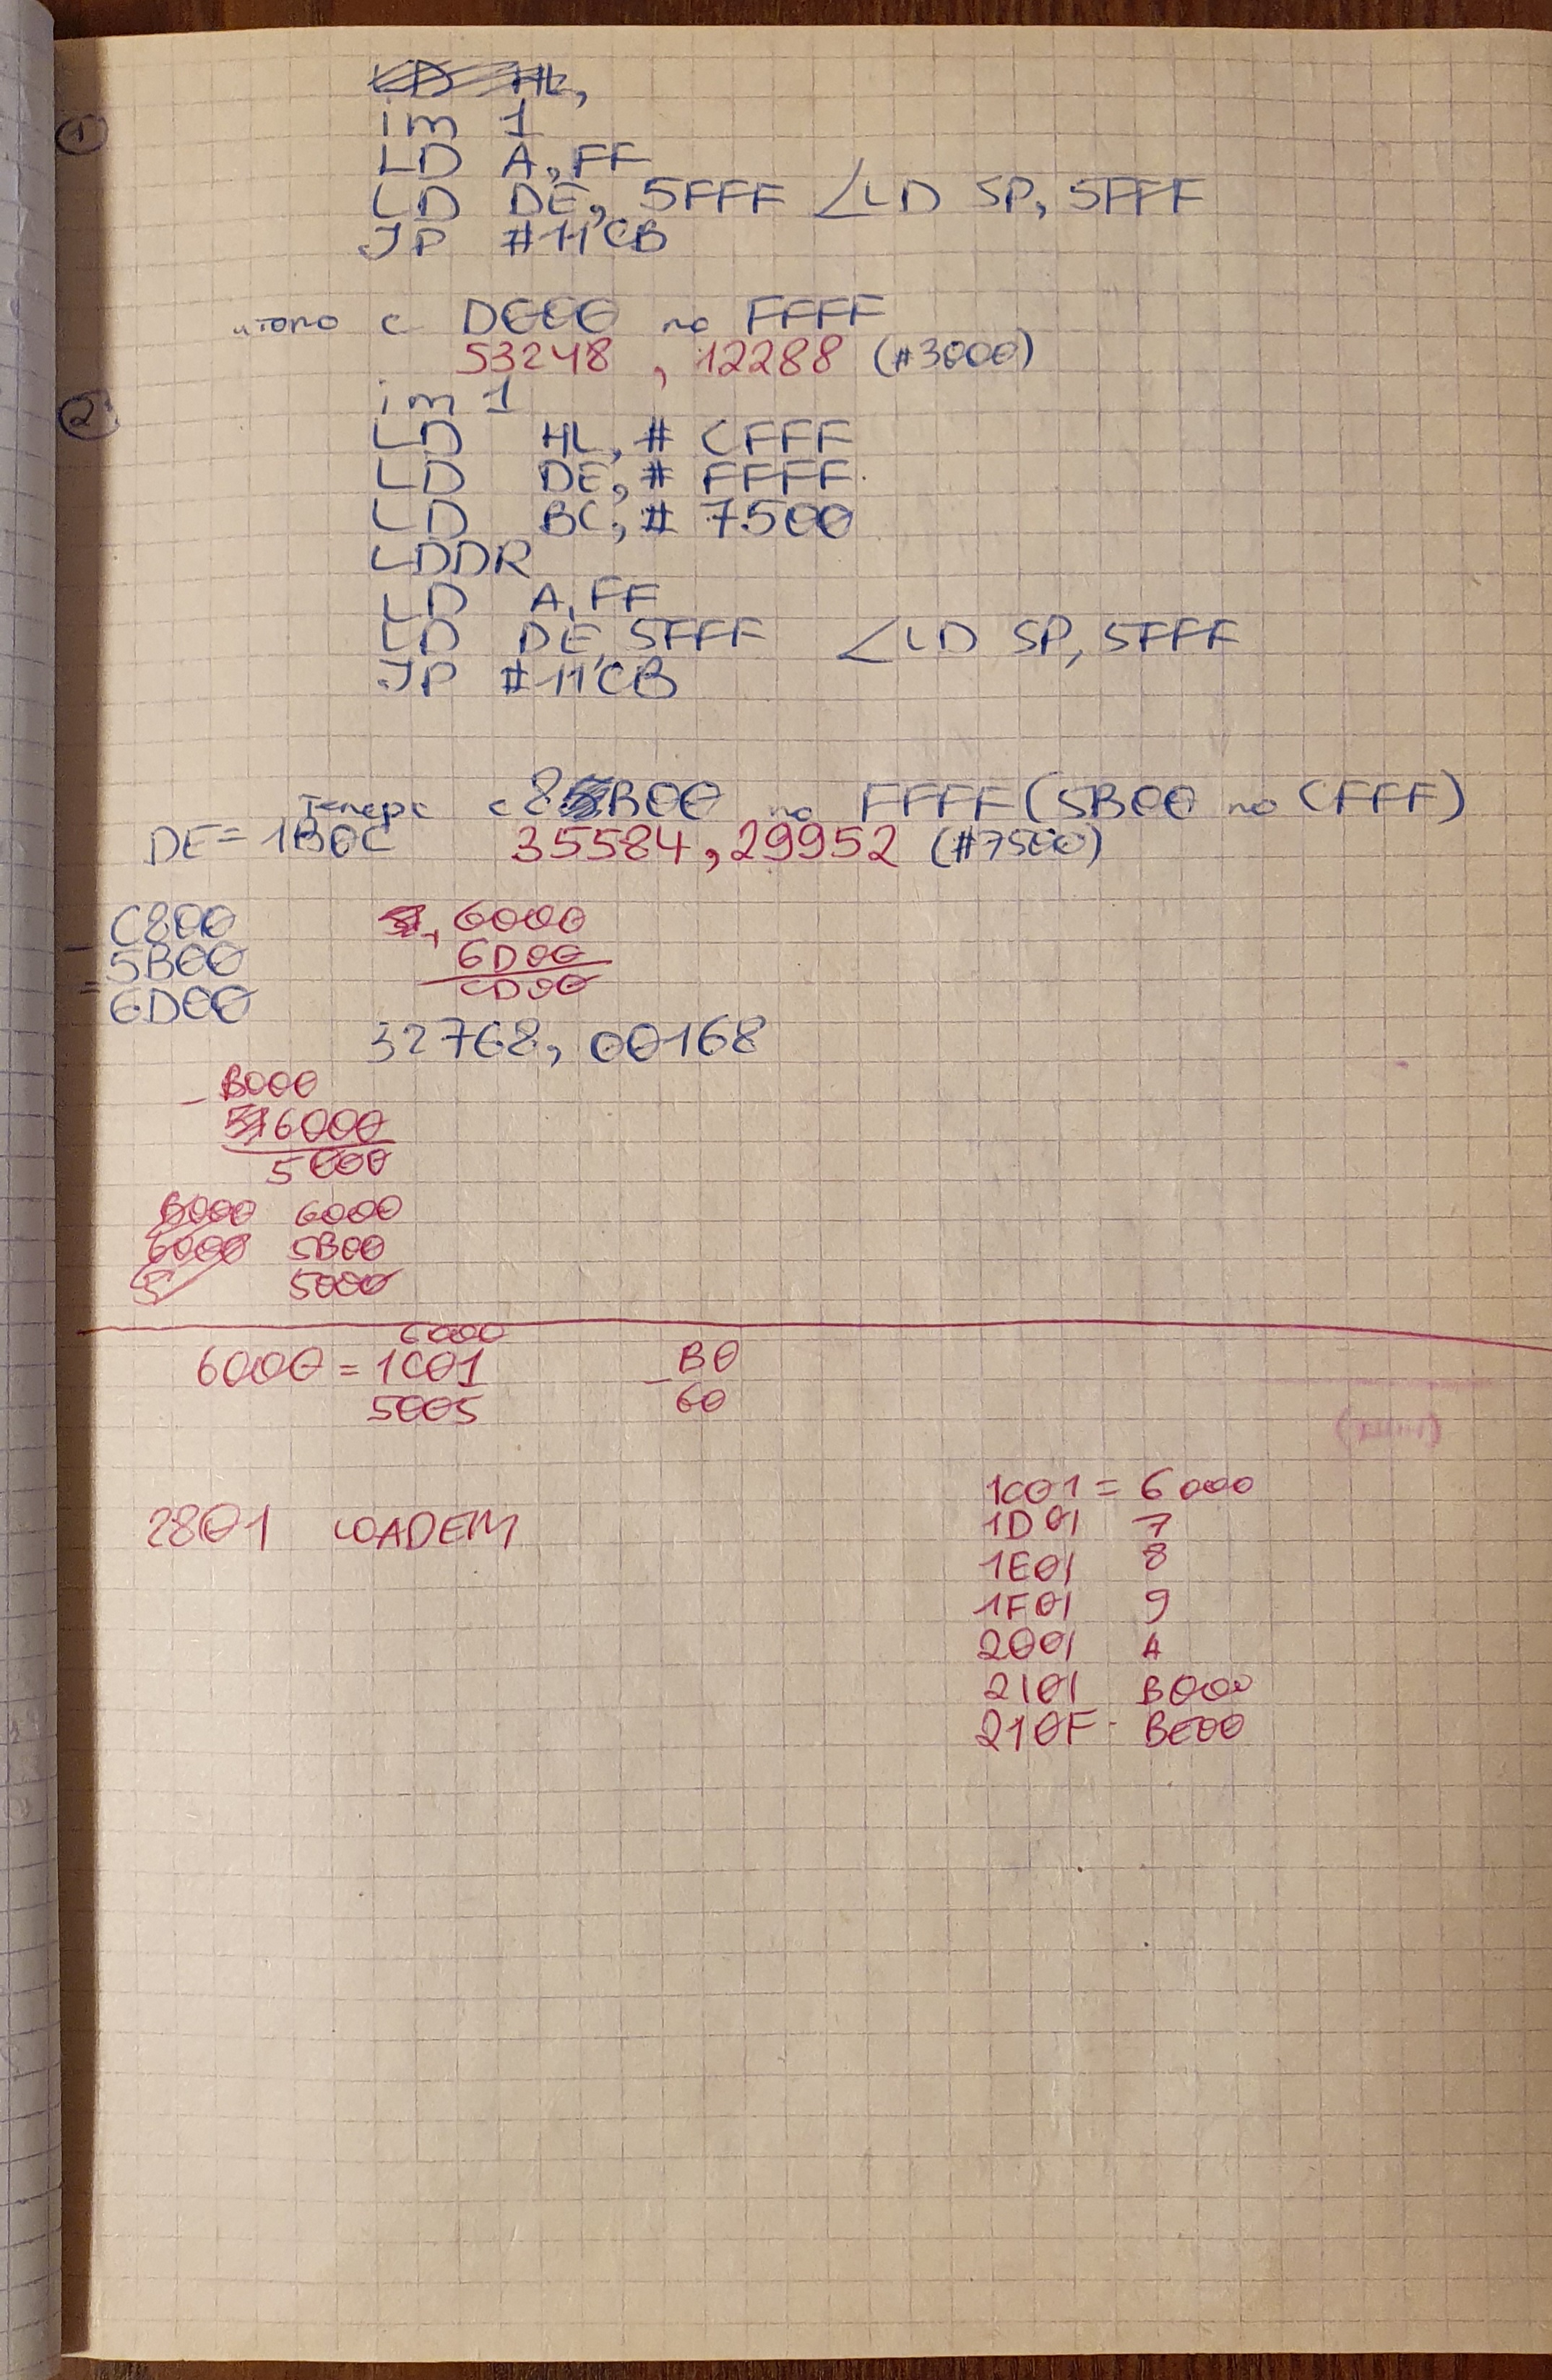 LD HL,
① im 1
LD A, FF
LD DE, 5FFF ∠LD SP, 5FFF
JP #11CB
итого с D000 по FFFF
53248, 12288 (#3000)
② im 1
LD HL, # CFFF
LD DE, # FFFF
LD BC, # 7500
LDDR
LD A, FF
LD DE, 5FFF ∠LD SP, 5FFF
JP #11CB
Теперь с 8B00 по FFFF (5B00 по CFFF)
DE = 1B0C 35584, 29952 (#7500)
- C800
5B00
= 6D00
+ 6000
6D00
CD00
32768, 00168
- B000
6000
5000
B000 6000
6000 5B00
5 5000
6000
6000 = 1C01
5005
- B0
60
2801 LOADEM
1C01 = 6000
1D01 7
1E01 8
1F01 9
2001 A
2101 B000
210F - BE00